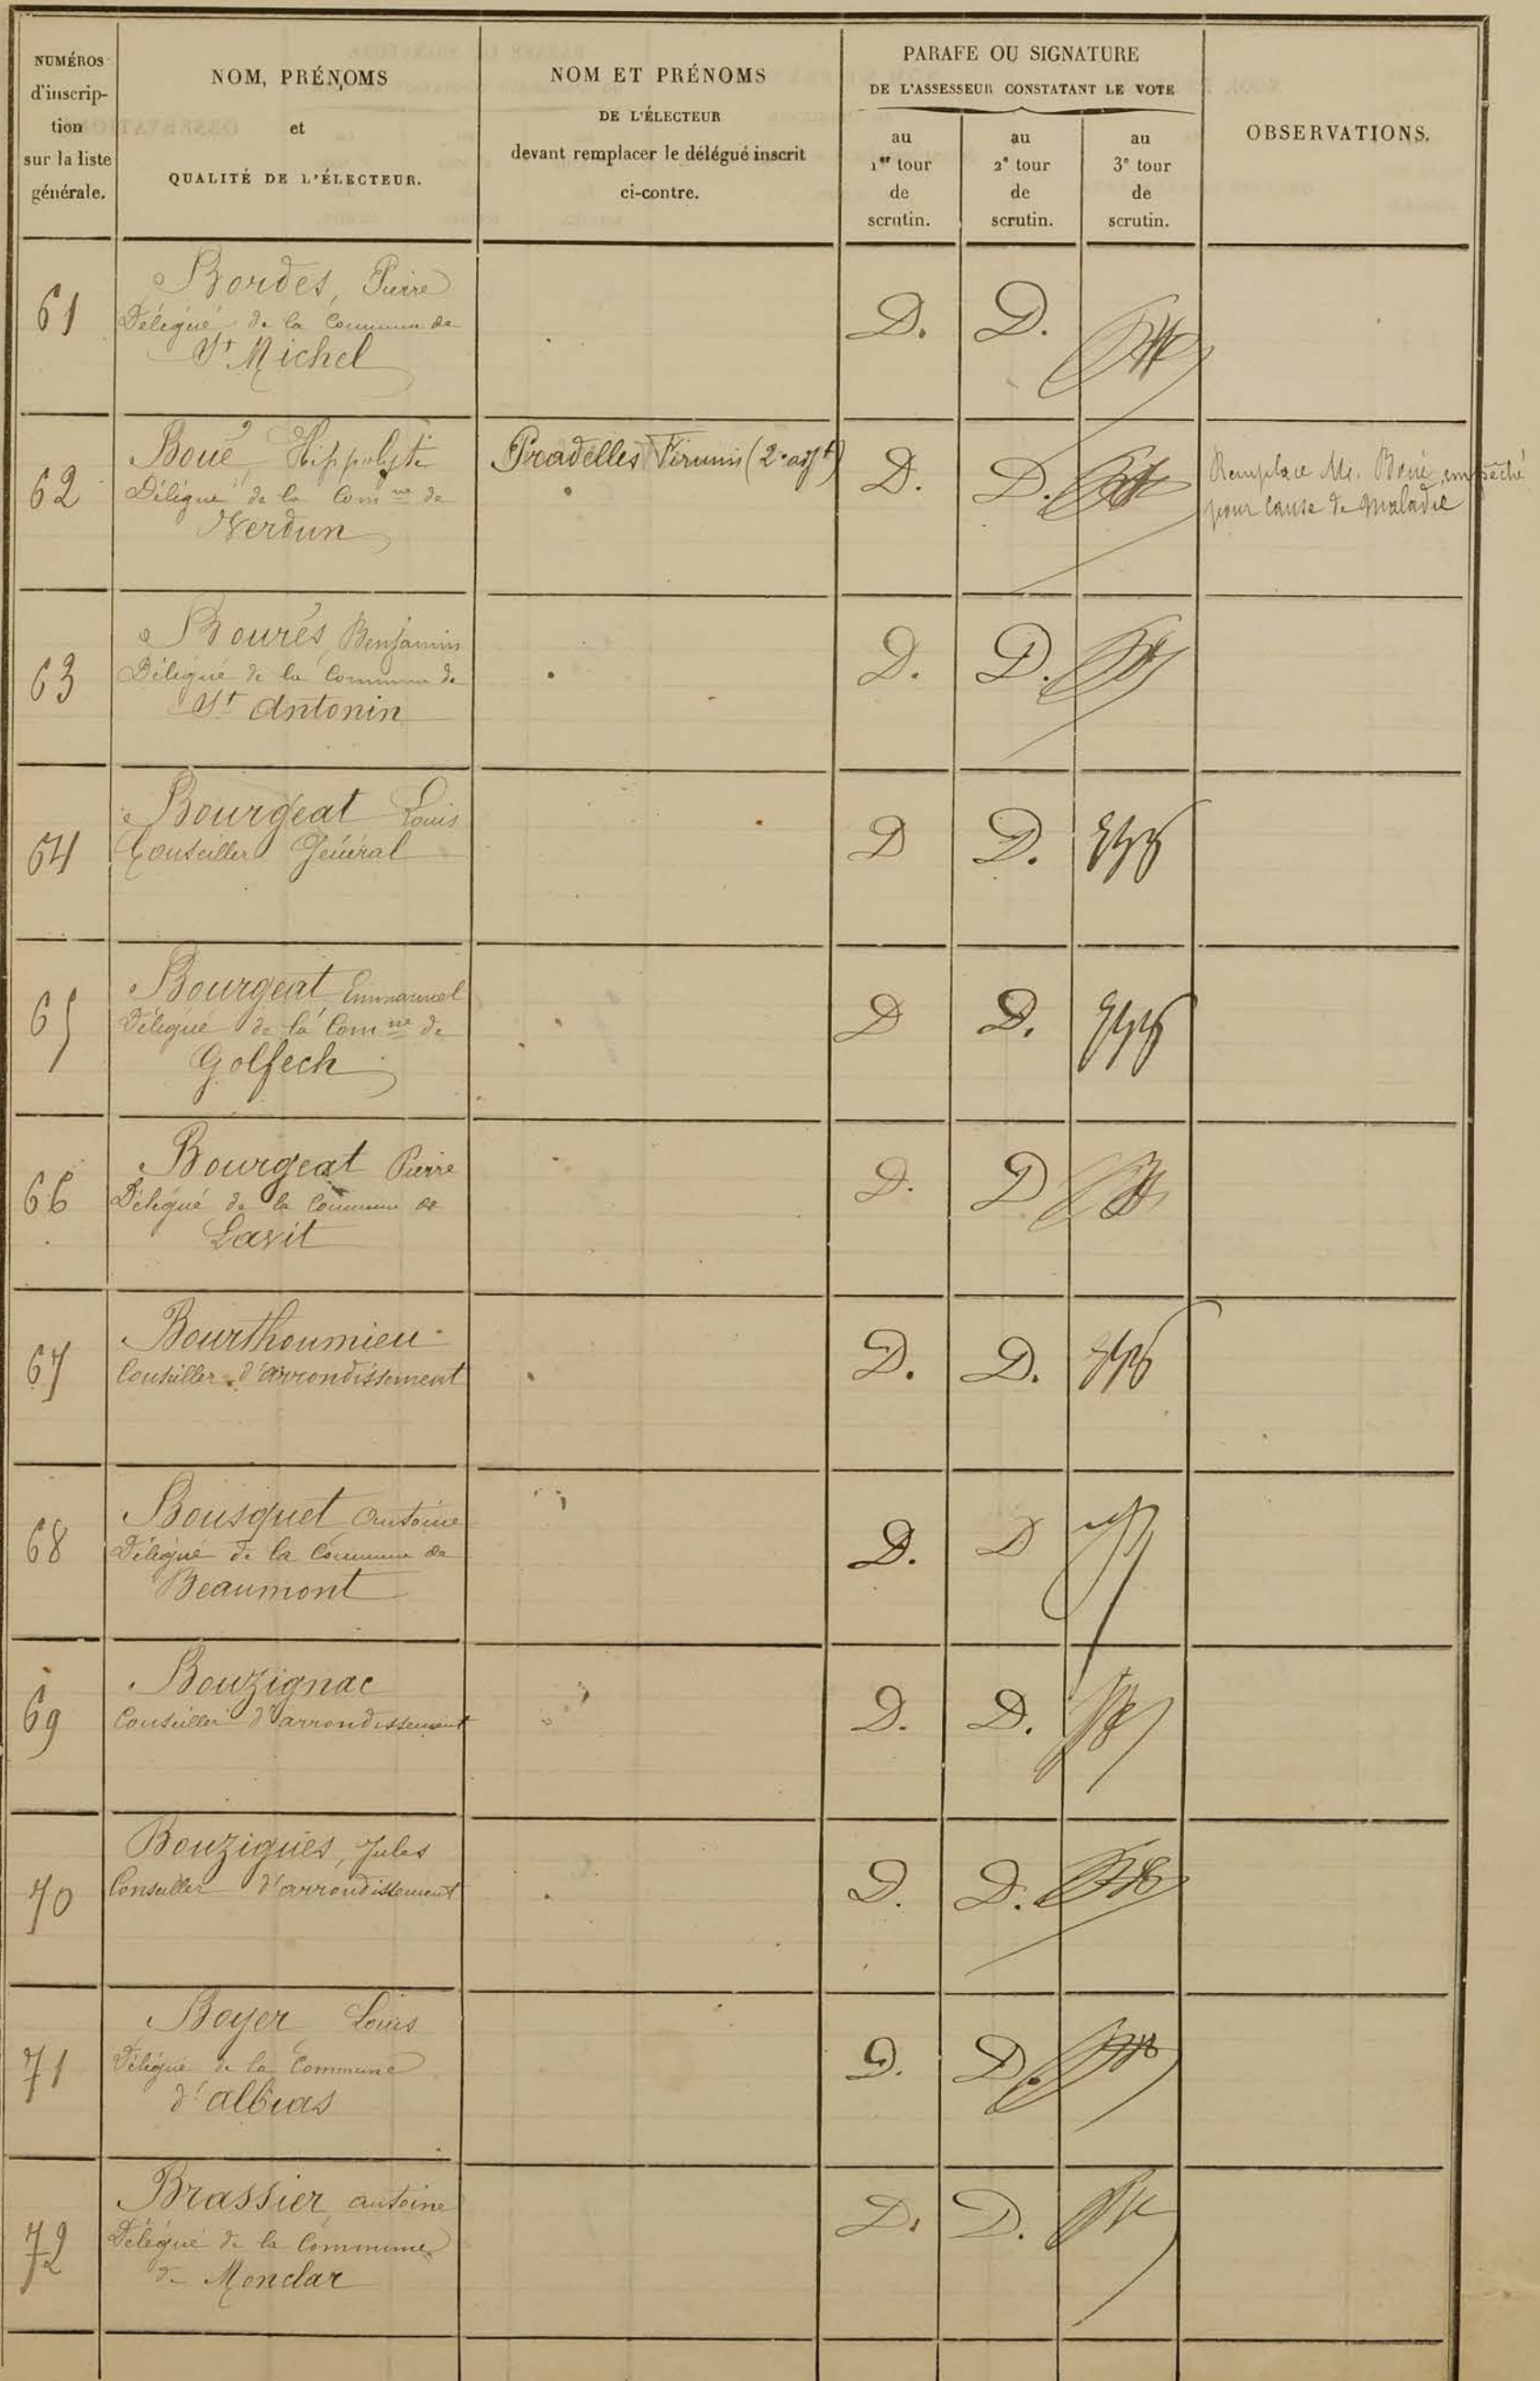 NUMÉROS
d'inscrip-
tion
sur la liste
générale.
NOM, PRÉNOMS
et
QUALITÉ DE L'ÉLECTEUR.
NOM ET PRÉNOMS
DE L'ÉLECTEUR
devant remplacer le délégué inscrit
ci-contre.
PARAFE OU SIGNATURE
DE L'ASSESSEUR CONSTATANT LE VOTE
au
1er tour
de
scrutin.
au
2e tour
de
scrutin.
au
3e tour
de
scrutin.
OBSERVATIONS.
61
Bordes, Pierre
Délégué de la Commune de
St Michel
D. D.
62
Boué, Hippolyte
Délégué de la Comne de
Verdun
Pradelles (2e adjt)
D. D.
Remplace Mr. Boué empêché
pour cause de maladie
63
Bourès, Benjamin
Délégué de la Commune de
St Antonin
D. D.
64
Bourgeat Louis
Conseiller Général
D D.
65
Bourgeat, Emmanuel
Délégué de la Comne de
Golfech
D D.
66
Bourgeat Pierre
Délégué de la Commune de
Lavit
D. D
67
Bourthoumieu
Conseiller d'arrondissement
D. D.
68
Bousquet Antoine
Délégué de la Commune de
Beaumont
D. D
69
Bouzignac
Conseiller d'arrondissement
D. D.
70
Bouzigues, Jules
Conseiller d'arrondissement
D. D.
71
Boyer Louis
Délégué de la Commune
d'albias
D. D.
72
Brassier, antoine
Délégué de la Commune
de Monclar
D. D.